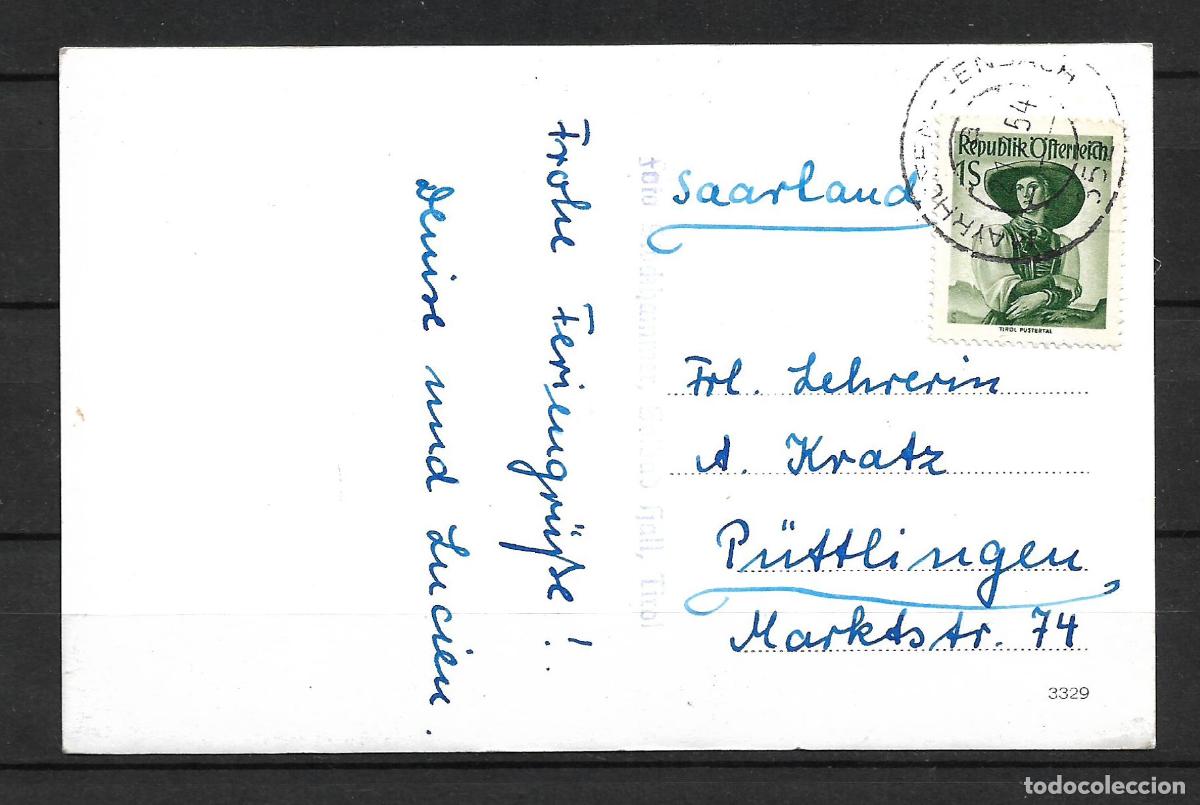 Frohe Feriengrüße!
Denise und Lucien.
Saarland
Republik Österreich
1S
TIROL PUSTERTAL
54
Frl. Lehrerin
A. Kratz
Püttlingen
Marktstr. 74
3329
todocoleccion